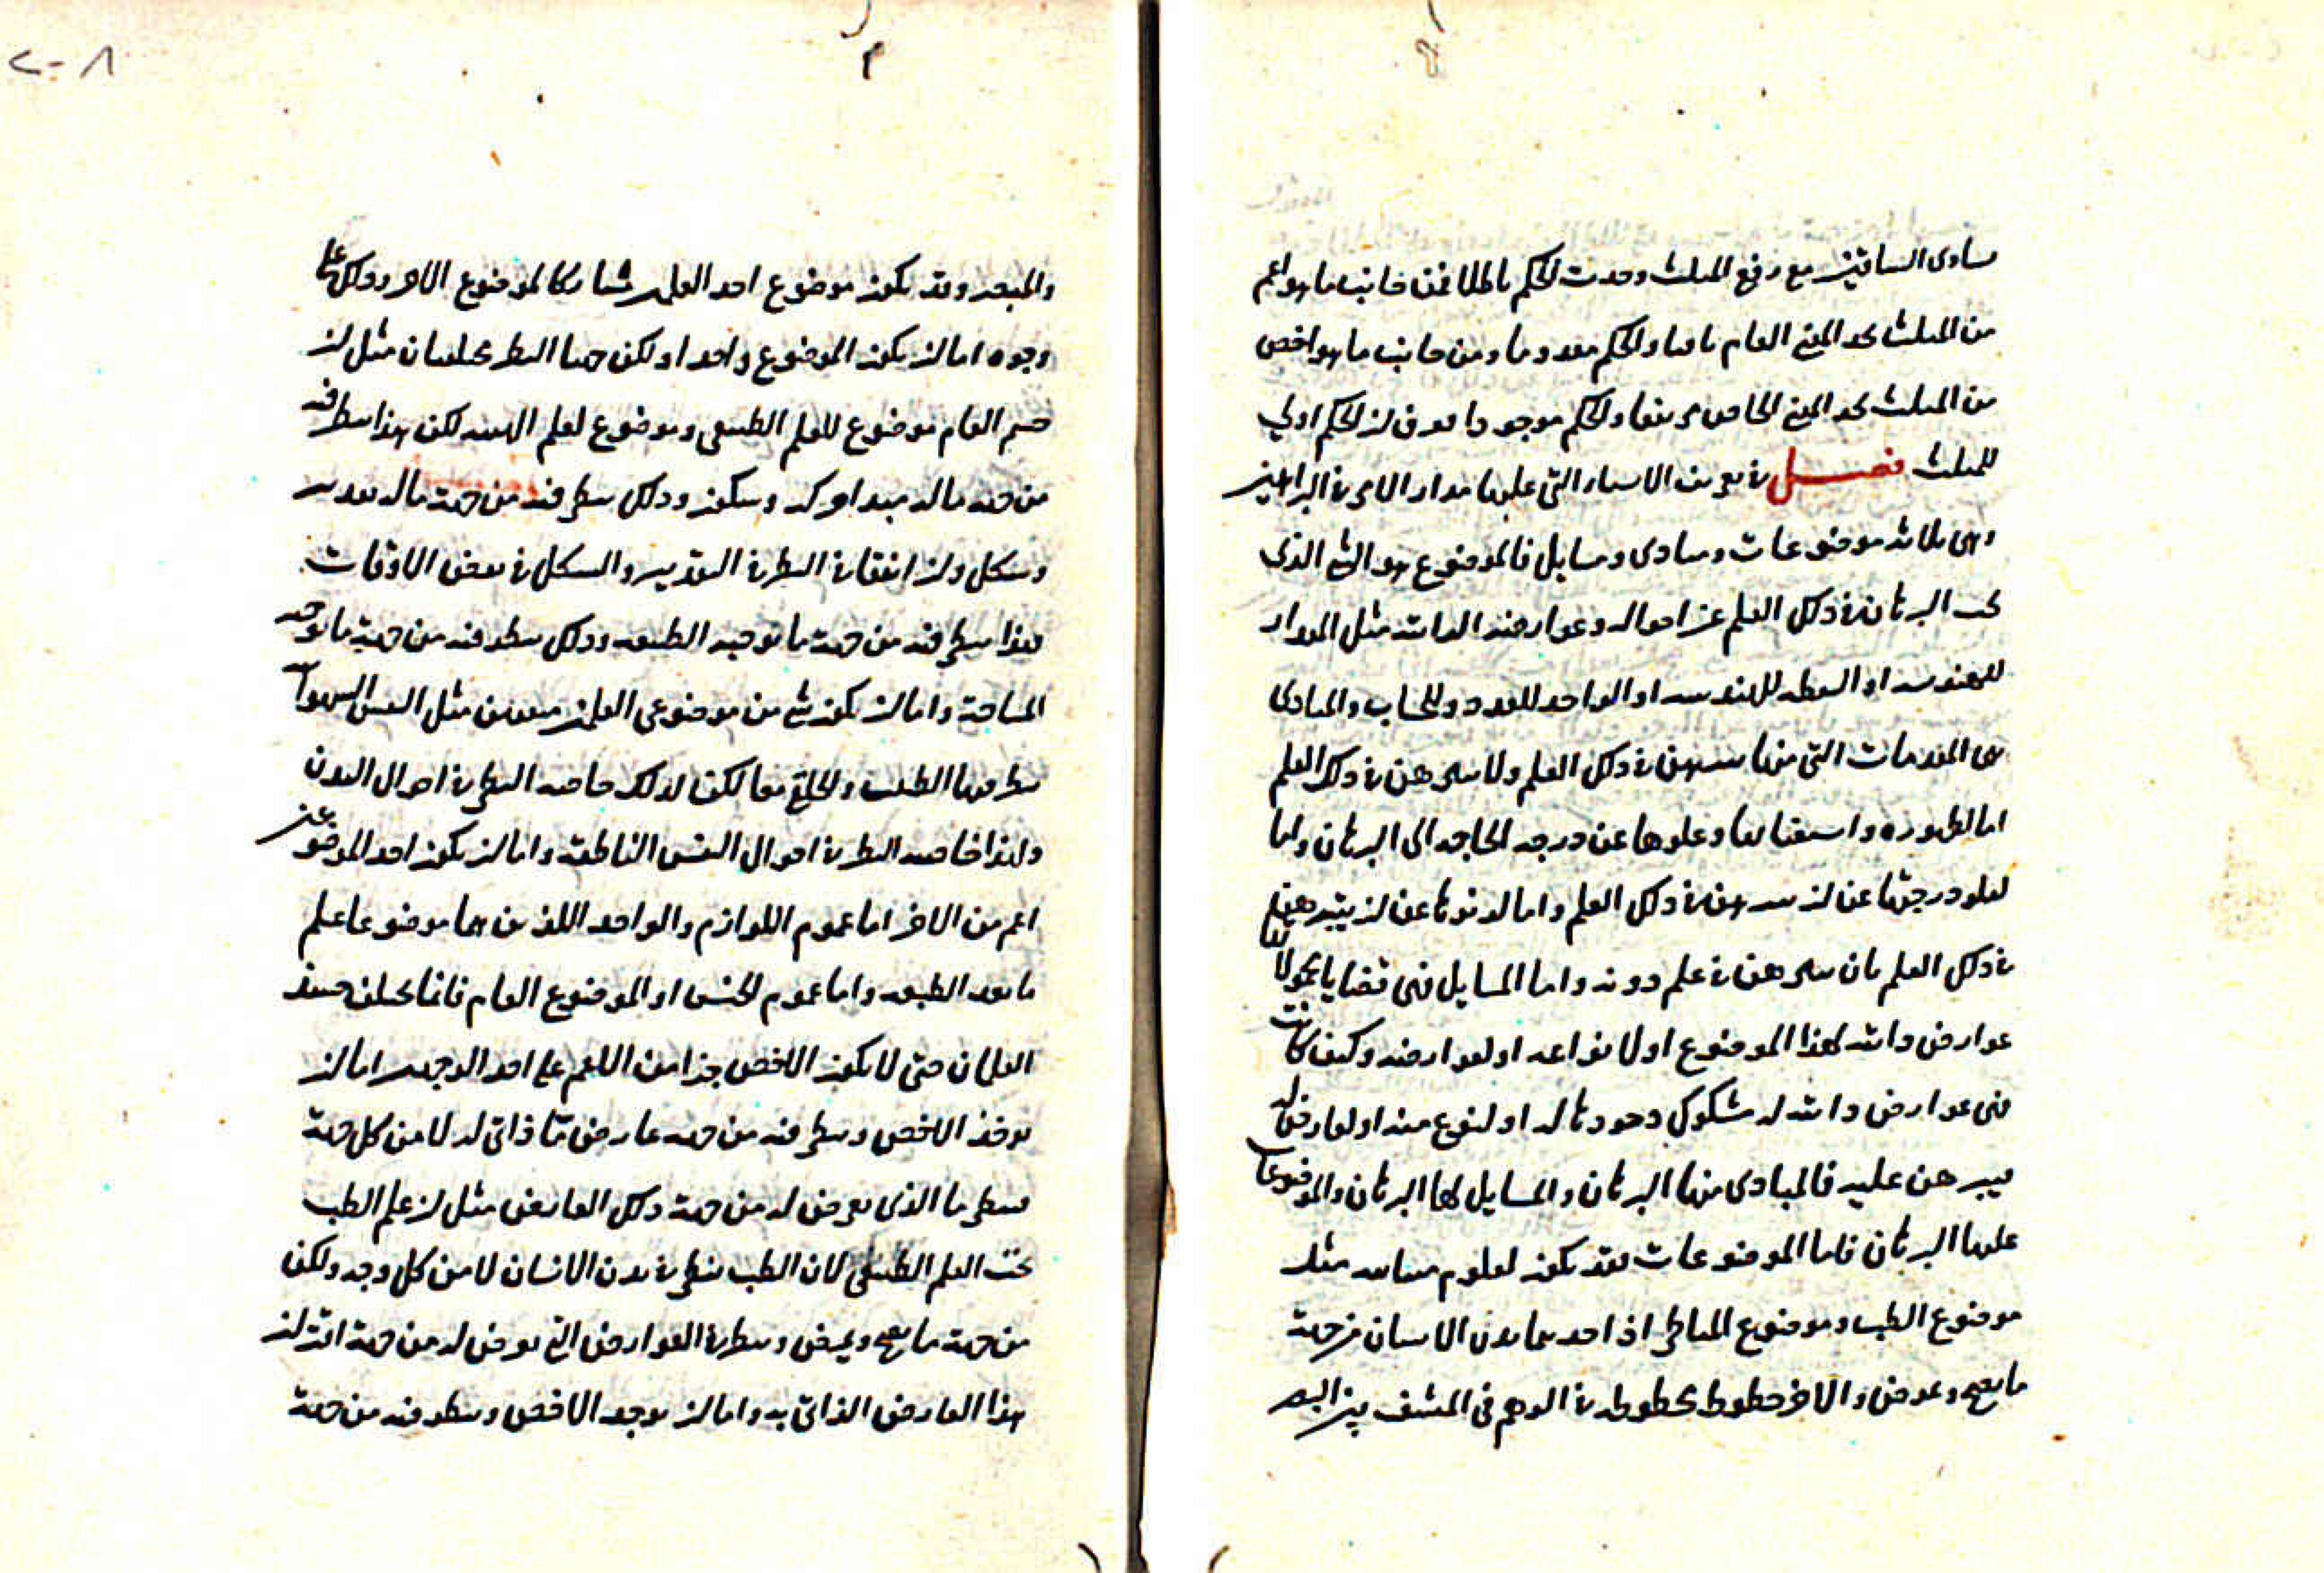 مساوى الساقين مع رفع المثلث وجدت الحكم باطلا فمن جانب ما هو اعم
من المثلث تجد المعنى العام باقيا والحكم معدوما ومن جانب ما هو اخص
من المثلث تجد المعنى الخاص مرتفعا والحكم موجودا فتعرف ان الحكم اولي
للمثلث فصل في تعريف الاسماء التي عليها مدار الامر في البراهين
وهي ثلاثة موضوعات ومبادى ومسايل فالموضوع هو الشي الذي
يبحث البرهان في ذلك العلم عن احواله وعوارضه الذاتية مثل المقدار
للهندسة او النقطة للهندسة او الواحد للعدد والحساب والمبادى
هي المقدمات التي منها يتبرهن في ذلك العلم ولا يتبرهن في ذلك العلم
اما لظهوره واستغنائها وعلوها عن درجة الحاجة الى البرهان واما
لعلو درجتها عن ان يتبرهن في ذلك العلم واما لدنوها عن ان يتبرهن
في ذلك العلم بان يتبرهن في علم دونه واما المسايل فهي قضايا محمولاتها
عوارض ذاتية لهذا الموضوع او لانواعه او لعوارضه وكيف كانت
فهي عوارض ذاتية له مشكوك وجودها له او لنوع منه او لعارض له
فيبرهن عليه فالمبادى منها البرهان والمسايل لها البرهان والموضوعات
عليها البرهان فاما الموضوعات فقد يكون لعلوم متباينة مثل
موضوع الطب وموضوع المناظر اذ احدهما بدن الانسان من جهة
ما يصح ويمرض والاخر خطوط كخطوطه في الوهم في المشف بين البصر
والمبصر وقد يكون موضوع احد العلمين مشاركا لموضوع الاخر وذلك على
وجوه اما ان يكون الموضوع واحدا ولكن جهتا النظر مختلفتان مثل ان
جسم العالم موضوع للعلم الطبيعي وموضوع لعلم الهيئة لكن هذا ينظر فيه
من جهة ما له مبدا حركة وسكون وذلك ينظر فيه من جهة ما له تقدير
وشكل وان اتفقا في النظر في التقدير والشكل في بعض الاوقات
فهذا ينظر فيه من جهة ما توجبه الطبيعة وذلك ينظر فيه من جهة ما توجبه
المساحة واما ان يكون شي من موضوعي العلمين مثل النفس
ينظر فيها الطب والخلق معا لكن لذلك خاصة النظر في احوال البدن
ولهذا خاصة النظر في احوال النفس الناطقة واما ان يكون احد الموضوعين
اعم من الاخر اما عموم اللوازم والواحد اللذين هما موضوعا علم
ما بعد الطبيعة واما عموم الجنس او الموضوع العام فانما يختلف حينئذ
العلمان حتى لا يكون الاخص جزا من الاعم على احد الوجهين اما ان
يوخذ الاخص وينظر فيه من جهة عارض ما ذاتي له لا من كل جهة
فينظر ما الذي يعرض له من جهة ذلك العارض مثل ان علم الطب
تحت العلم الطبيعي لان الطب ينظر في بدن الانسان لا من كل وجه ولكن
من جهة ما يصح ويمرض وينظر في العوارض التي تعرض له من جهة اقتران
هذا العارض الذاتي به واما ان يوجد الاخص وينظر فيه من جهة